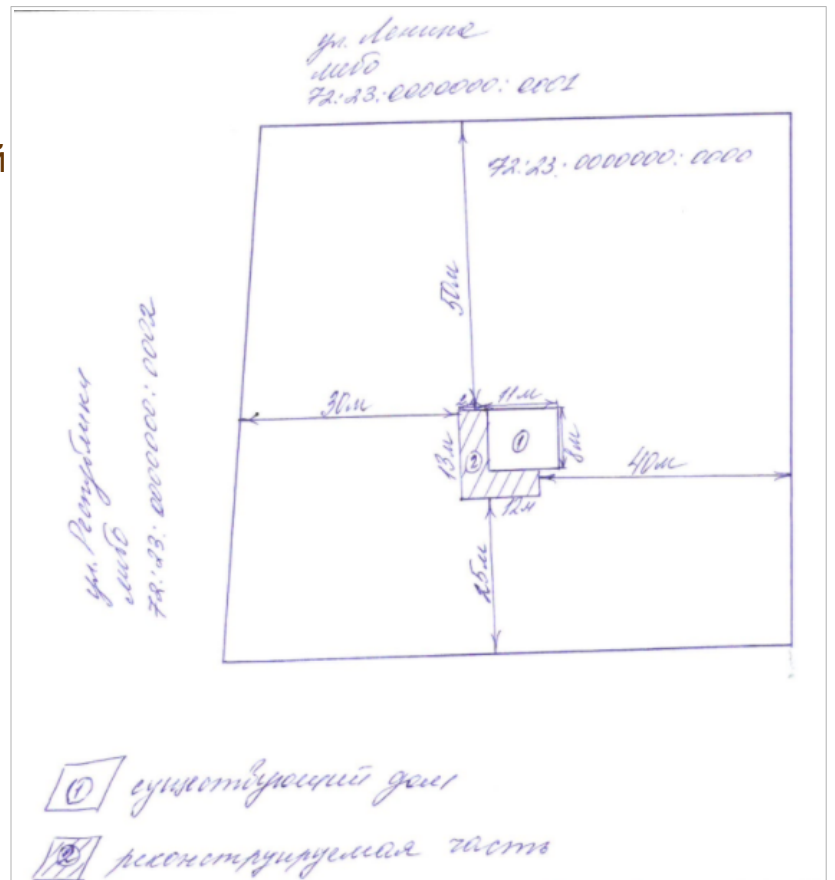 ул. Ленина
либо
72:23:0000000:0001
й
72:23:0000000:0000
50м
ул. Республики
либо
72:23:0000000:0002
30м
11м
1
8м
13м
2
40м
12м
25м
1 существующий дом
2 реконструируемая часть